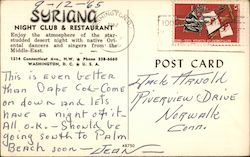 9-12-65
SYRIANA
NIGHT CLUB & RESTAURANT
Enjoy the atmosphere of the star-
studded desert night with native Ori-
ental dancers and singers from the
Middle-East.
1214 Connecticut Ave., N.W. • Phone 338-6660
WASHINGTON, D. C. & U. S. A.
This is even better
than Cape Cod - Come
on down and lets
have a night of it.
All o.k. - Should be
going south to Palm
Beach soon - Jean
K8750
POST CARD
Jack Arnold
Riverview Drive
Norwalk
Conn.